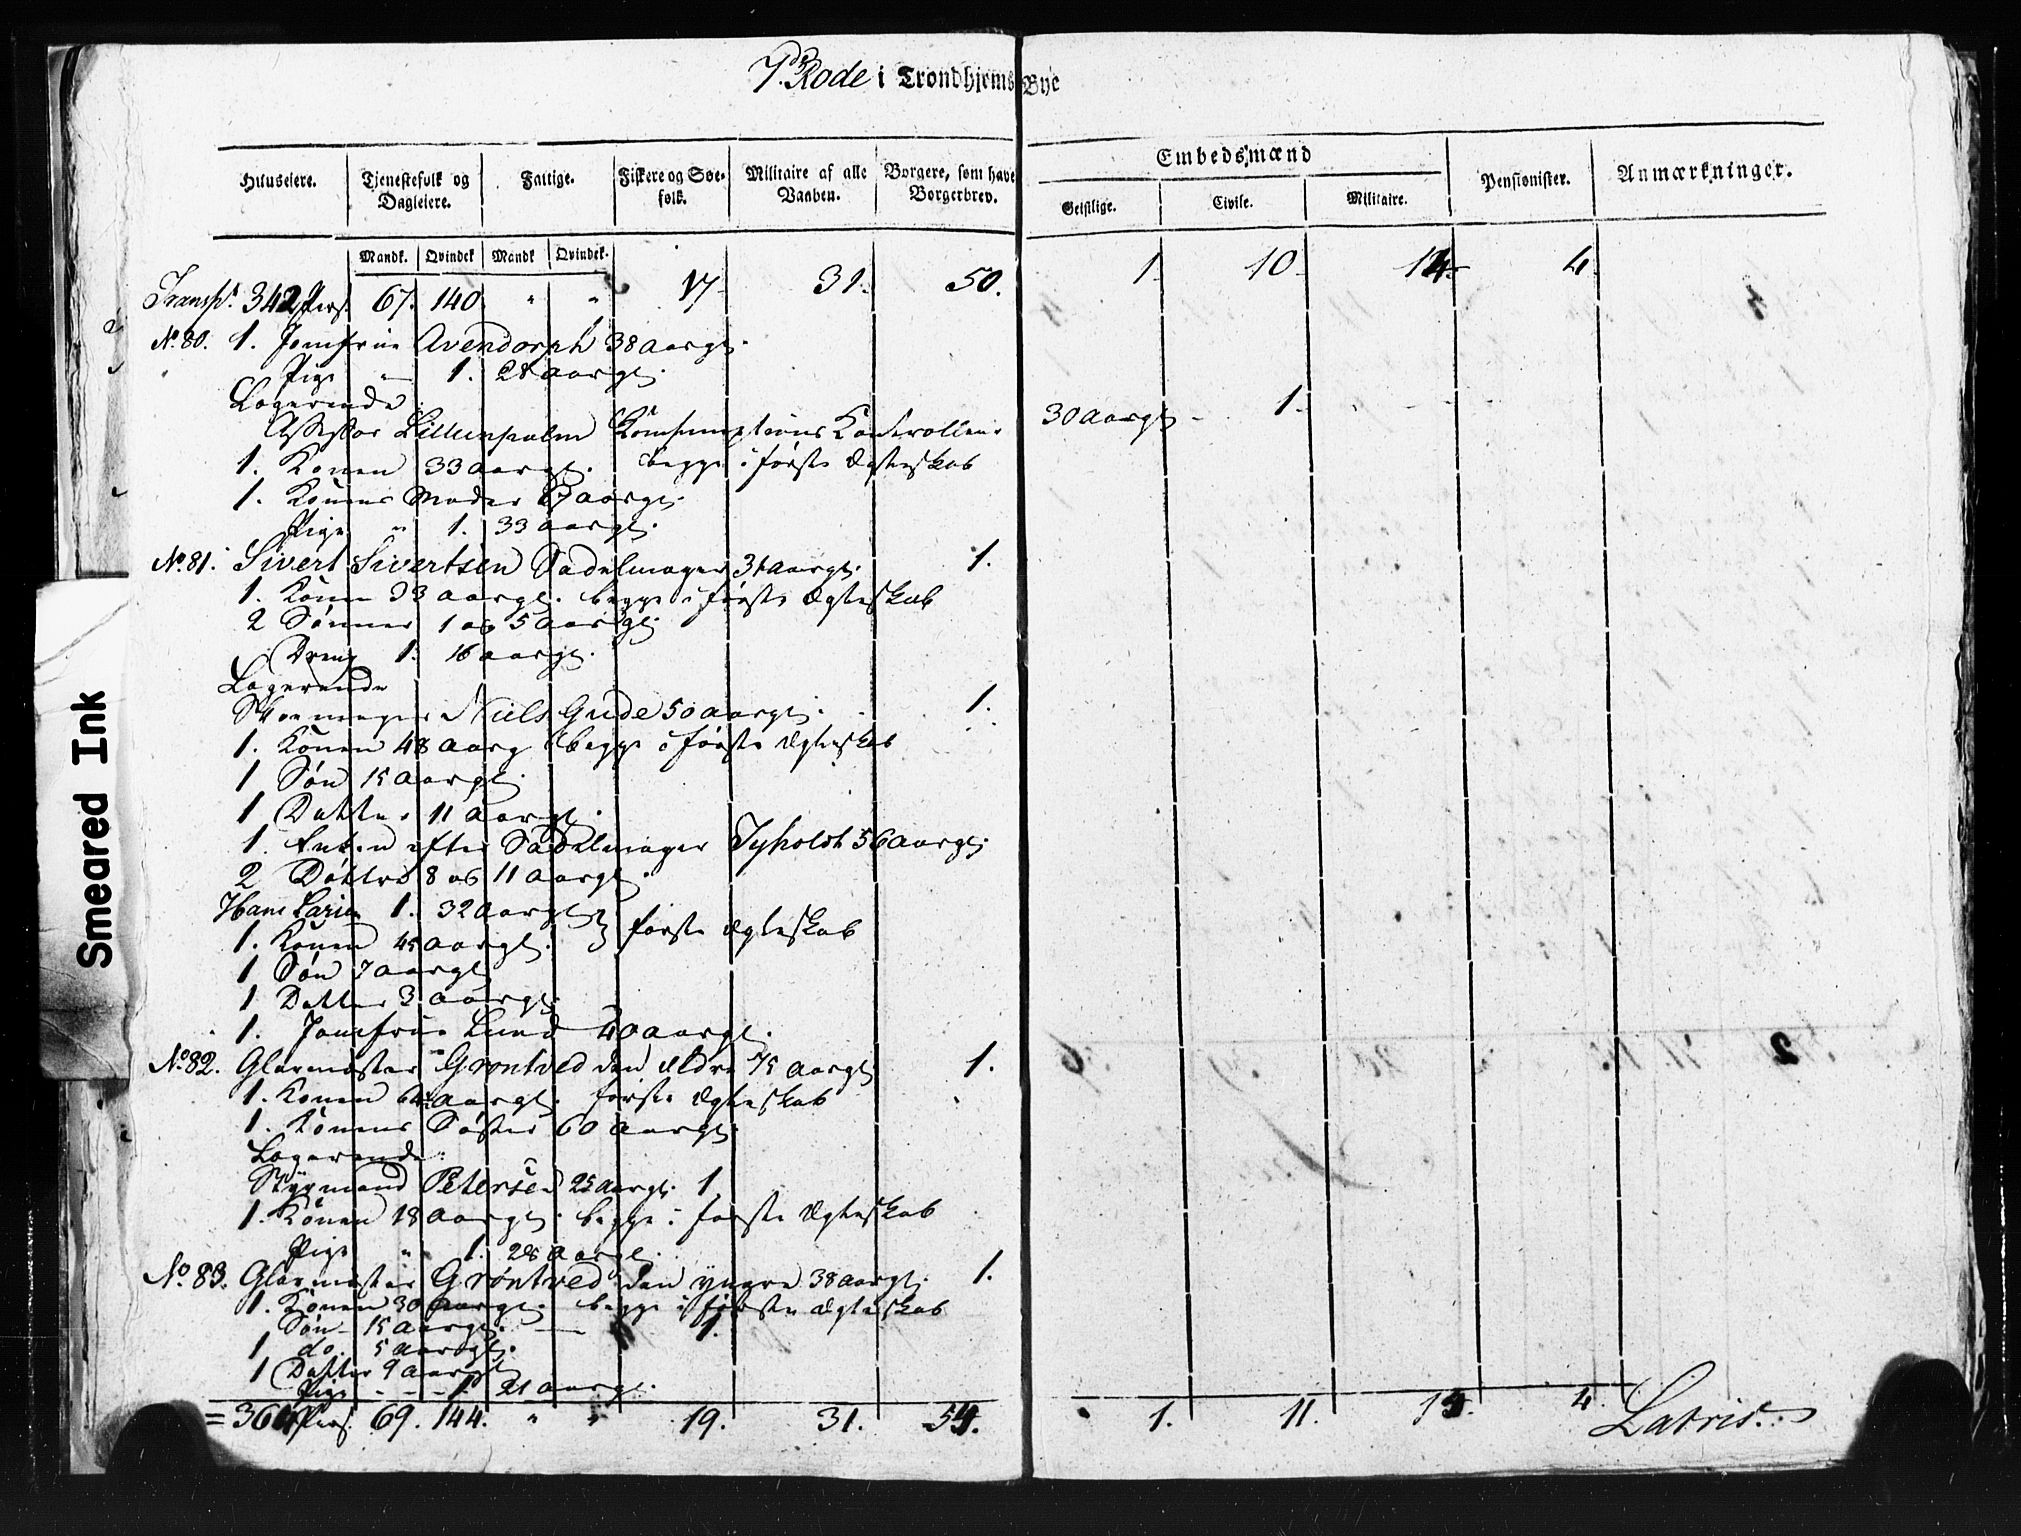 7de Rode i Trondhjems Bye
Huuseiere. Tjenestefolk og Dagleiere. Fattige. Fiskere og Søe-folk. Militaire af alle Vaaben. Borgere, som have Borgerbrev. Embedsmænd Pensionister. Anmærkninger.
Geistlige. Civile. Militaire.
Mandk. Qvindek Mandk Qvindek.
Transpt. 342 Pers. 67. 140. " " 17. 31. 50. 1. 10. 14. 4.
No. 80. 1. Jomfrue Avendorph 38 aargl.
Pige " 1. 28 aargl.
Logerende
Assistor Lillienpalm Consumptions Controlleur 30 aargl. 1.
1. Konen 33 aargl. begge i første Ægteskab
1. Konens Moder aargl.
Pige " 1. 33 aargl.
No. 81. Sivert Sivertsen Sadelmager 31 aargl. 1.
1. Konen 33 aargl. begge i første Ægteskab
2 Sønner 1 og 5 aargl.
Dreng 1. 16 aargl.
Logerende
Skoemager Niels Gude 50 aargl. 1.
1. Konen 48 aarg begge i første Ægteskab
1 Søn 15 aargl.
1 Datter 11 aargl.
1. Enken efter Sadelmager Tyholdt 56 aargl.
2 Døttre 8 og 11 aargl.
Hans Larsen 1. 32 aargl.
1. Konen 45 aargl. } første Ægteskab
1 Søn 7 aargl
1 Datter 3 aargl.
1. Jomfrue Lund 40 aargl.
No. 82. Glarmester Grøntved den ældre 75 aargl 1.
1. Konen aargl. første Ægteskab
1. Konens Søster 60 aargl.
Logerende
Styrmand Petersen 25 aargl. 1
1. Konen 18 aargl. begge i første Ægteskab
Pige " 1. 28 aargl.
No. 83. Glarmester Grøntved den yngre 38 aargl. 1.
1. Konen 30 aargl. begge i første Ægteskab
Søn 15 aargl. 1.
1 do. 5 aargl.
1 Datter 9 aargl
Pige - - - 1 21 aargl.
= 364 Pers. 69. 144. " " 19. 31. 54. 1. 11. 4. Latris.
Smeared Ink